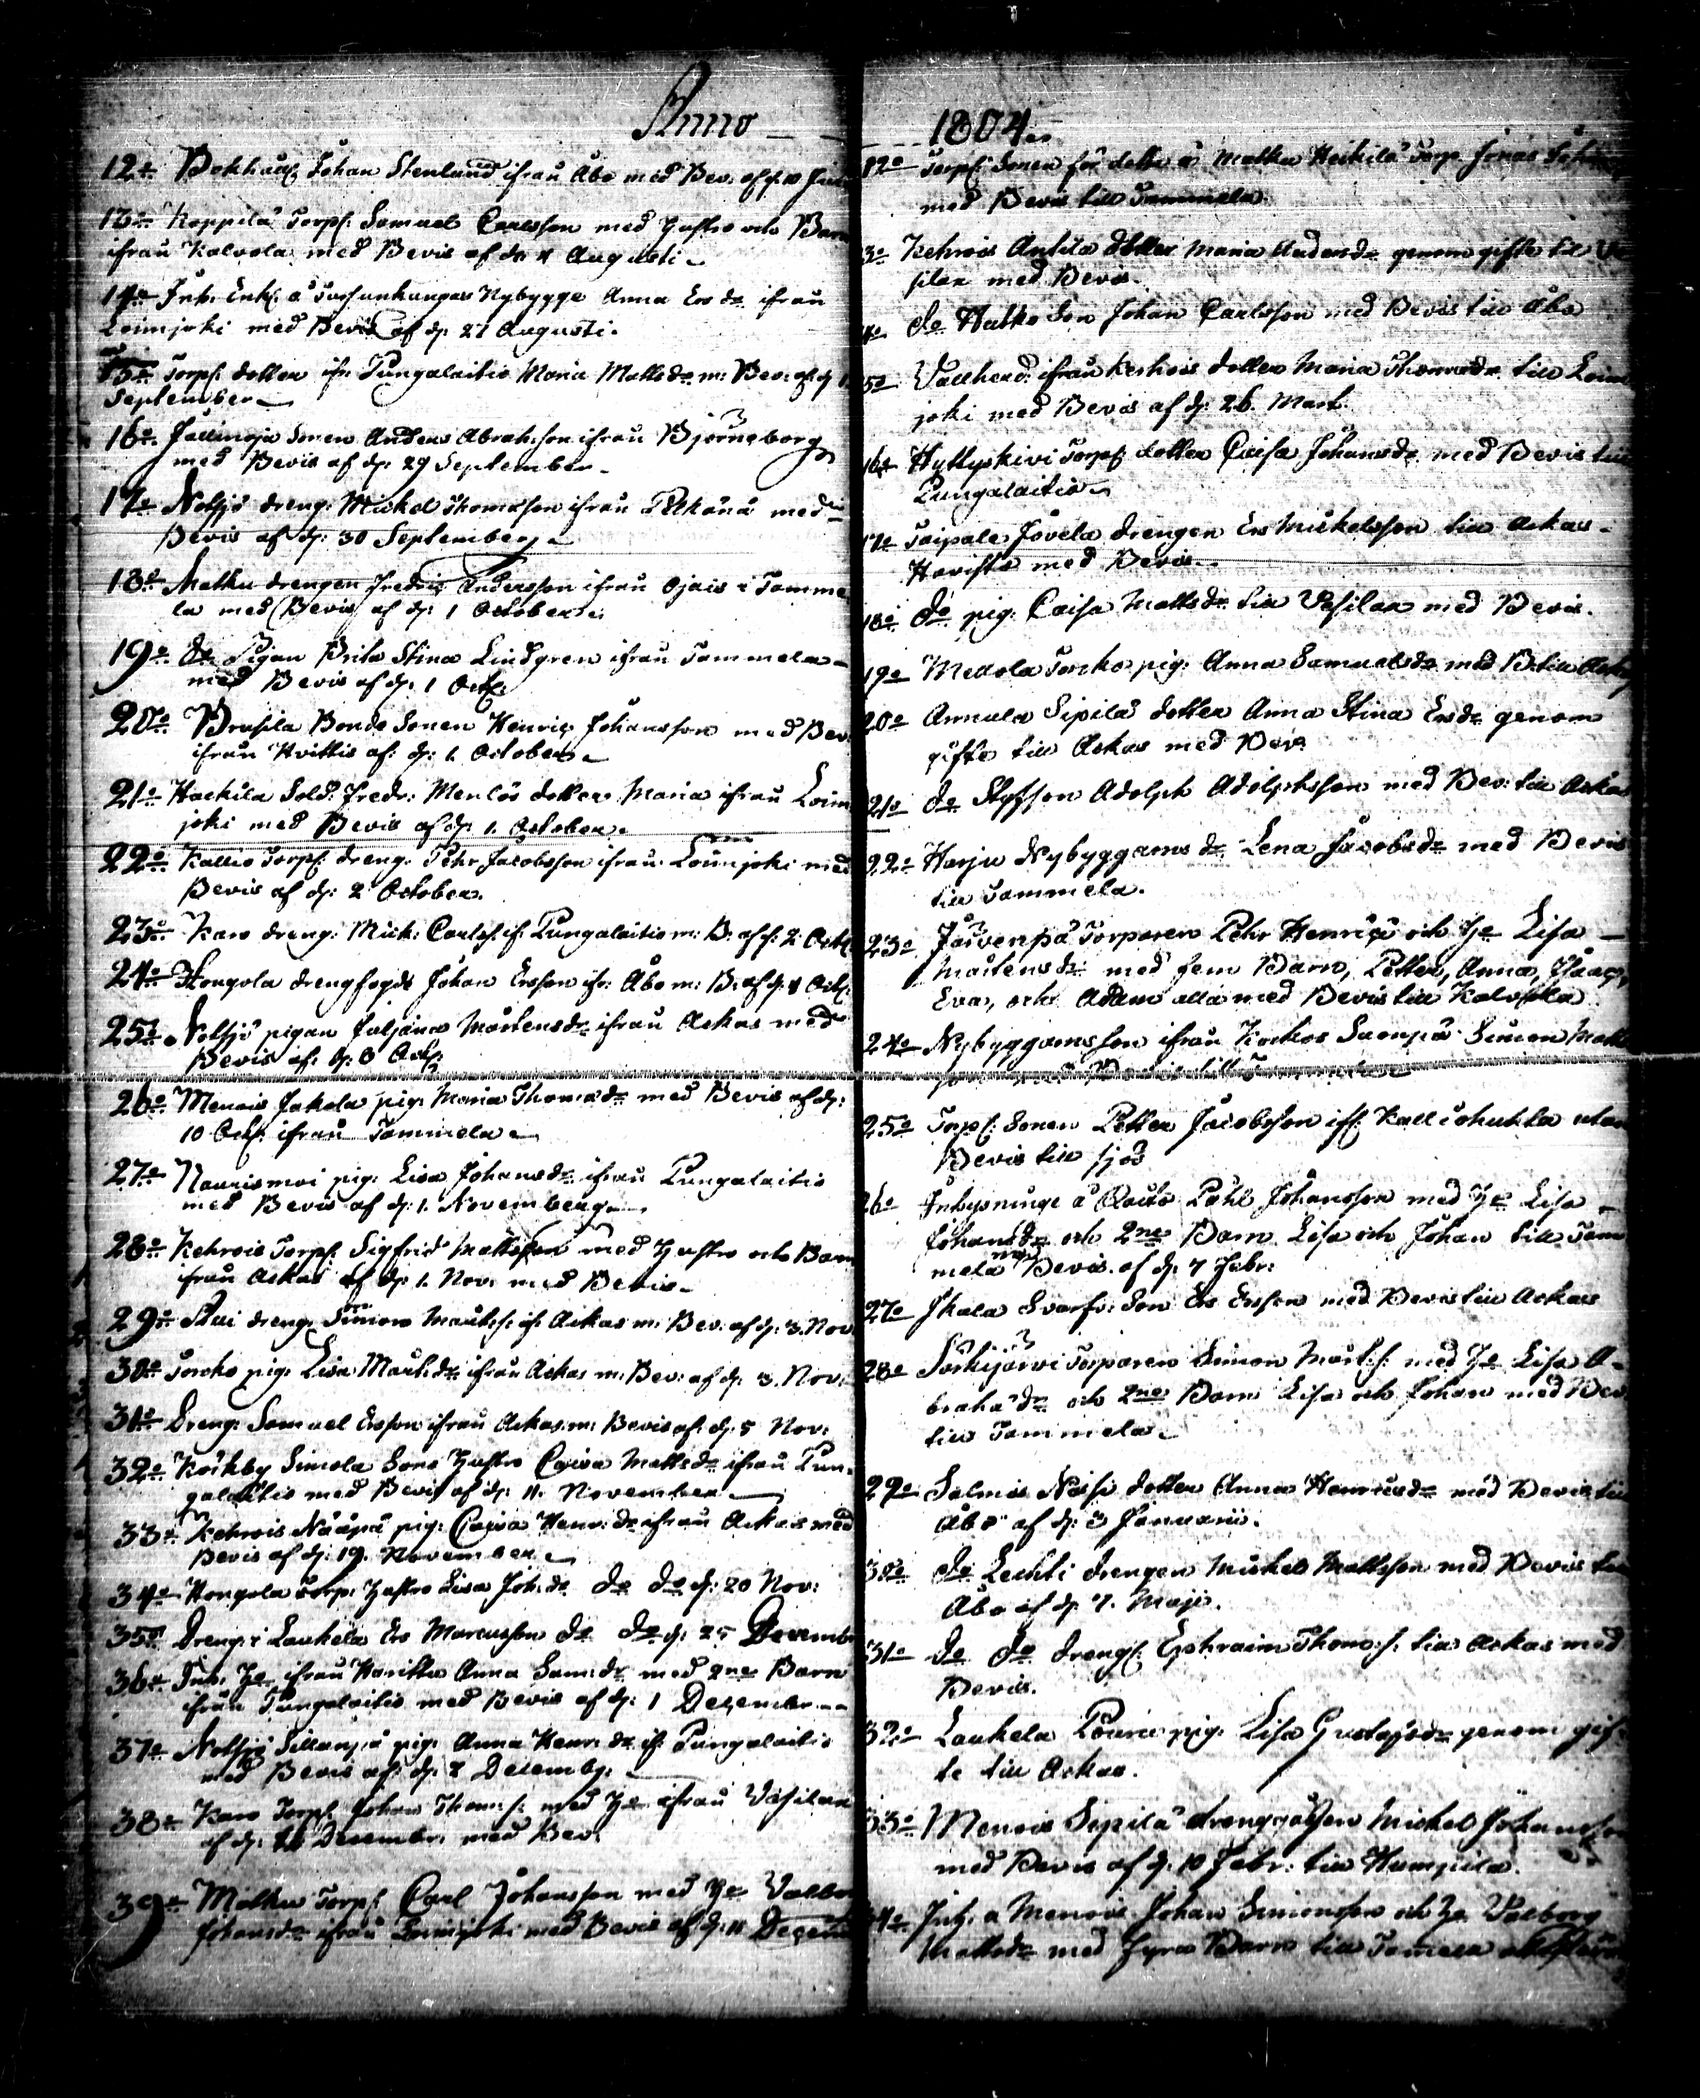 Anno
12o Bokhåll: Johan Stenlund ifrån Åbo med Bev. af d.
13o Koppilä Torp: Samuel Carlsson med Hustro och Barn
ifrån Kalvola med Bevis af d: 4 Augusti
14o Inh: Enk: å Nybygge Anna Ers dr ifrån
Loimjoki med Bevis af d: 27 Augusti.
15o Torp: dotter ifr. Pungalaitio Maria Matts dr m: Bev: af d
September
16o Sonen Anders Abrah:son ifrån Björneborg
med Bevis af d: 29 September
17o Nołsjö dreng: Mickel Thomasson ifrån med
Bevis af d: 30 September
18o Matku drengen Fredric Andersson ifrån Ojais i Tamme
la med Bevis af d: 1 October
19o do Pigan Brita Stina Lindgren ifrån Tammela
med Bevis af d: 1 Oct:
20o Bonde Sonen Henric Johansson med Bev:
ifrån Hvittis af d: 1. October
21o Hackila Sold: Fredr: Menlös dotter Maria ifrån Loim
joki med Bevis af d: 1. October
22o Kallio Torp: dreng: Pehr Jacobsson ifrån Loimjoki med
Bevis af d: 2 October.
23o Karo dreng: Mick: Carls: if: Pungalaitio m: B: af d: 2 Oct:
24o Hongola drengfogde Johan Ersson ifr: Åbo m: B: af d: 4 Oct:
25o Nołsjö pigan Juliana Mårtensdr ifrån Ackas med
Bevis af d: 8 Oct:
26o Menois Jakola pig: Maria Thoms dr med Bevis af d:
10 Oct: ifrån Tammela
27o pig: Lisa Johansdr ifrån Pungalaitio
med Bevis af d: 1. November
28o Kehrois Torp: Sigfrid Mattsson med Hustro och Barn
ifrån Ackas af d: 1. Nov: med Bevis
29o dreng: Simon Mårts: if: Ackas m: Bev: af d: 3. Nov
30o Torcko pig: Lisa Mårt:dr ifrån Ackas m: Bev: af d: 3. Nov:
31o Dreng: Samuel Ersson ifrån Ackas m: Bevis af d: 5 Nov:
32o Koikby Simola Sons Hustro Caisa Matts dr ifrån Pun-
galaitio med Bevis af d: 11. November
33o Kehrois Nääpä pig: Caisa Henr: dr ifrån Ackas med
Bevis af d: 19. November
34o Hongola Torp: Hustro Lisa Joh: dr do do d: 20 Nov:
35o Dreng: i Laukela Ers Marcusson do do d: 25 Decemb
36o Inh: H: ifrån Anna Sam: dr med 2ne Barn
ifrån Pungalaitio med Bevis af d: 1 December
37o Nołsjö Sillanpä pig: Anna Henr: dr if: Pungalaitio
med Bevis af d: 2 Decemb:
38o Karo Torp: Johan Thom:s: med H: ifrån Vesilax
af d: December med Bev:
39o Matku Torp: Carl Johansson med H: Valbor
Johansdr ifrån Loimjoki med Bevis af d: 11 Decem
1804
12o Torp: Sonen för detta å Matku Heikilä Torp Jonas
med Bevis till Tammela
3o Kehrois Antila dotter Maria Anders dr genom gifte till Ve
silax med Bevis
4o do Hatko Son Johan Carlsson med Bevis till Åbo
5o Vallherd: ifrån Kerhois dotter Maria Thomsdr till Loim
joki med Bevis af d: 26. Mart:
16o Hyllyskivi Torp: dotter Caisa Johansdr med Bevis till
Pungalaitio
17o Taipale Jovela drengen Ers Mickelsson till Ackas
med Bevis
18o do pig: Caisa Matts dr till Vesilax med Bevis.
19o Metola Torcko pig: Anna Samuelsdr med B: till Ackas
20o Annula Sipilä dotter Anna Stina Ersdr genom
gifte till Ackas med Bev
21o do Styfson Adolph Adolphsson med Bev: till Ackas
22o Harju Nybyggarns dr Lena Jacobsdr med Bevis
till Tammela.
23o Järvenpä Torparen Pehr Henric: och H: Lisa
Mårtensdr med fem Barn, Petter, Anna, Isaac,
Eva, och Adam alla med Bevis till Kalvola
24o Nybyggarns Son ifrån Korkos Saenpä Simon Matt
till Tammela
25o Torp: Sonen Petter Jacobsson if: Kalliohuhta utan
Bevis till sjös
26o Inhysninge å Påhl Johansson med H: Lisa
Johansdr och 2ne Barn Lisa och Johan till Tam
mela med Bevis af d: 7 Febr:
27o Jkala Svarfv: Son Ers Ersson med Bevis till Ackas
28o Särkijärvi Torparen Simon Mårt:s: med H: Lisa A-
braha dr och 2ne Barn Lisa och Johan med Bev
till Tammela
29o Salmis Nassi dotter Anna Henricsdr med Bevis till
Åbo af d: 3 Januarii.
30o do Lechti drengen Mickel Mattsson med Bevis till
Åbo af d: 7. Maji.
31o do do dreng: Ephraim Thom:s: till Ackas med
Bevis.
32o Laukela pig: Lisa Gustafsdr genom gif-
te till Ackas.
33o Menois Sipilä Mickel Johansson
med Bevis af d: 10 Febr: till Humpila.
34o Inh: å Menois Johan Simonsson och H: Valborg
Mattsdr med fyra Barn till Tamela